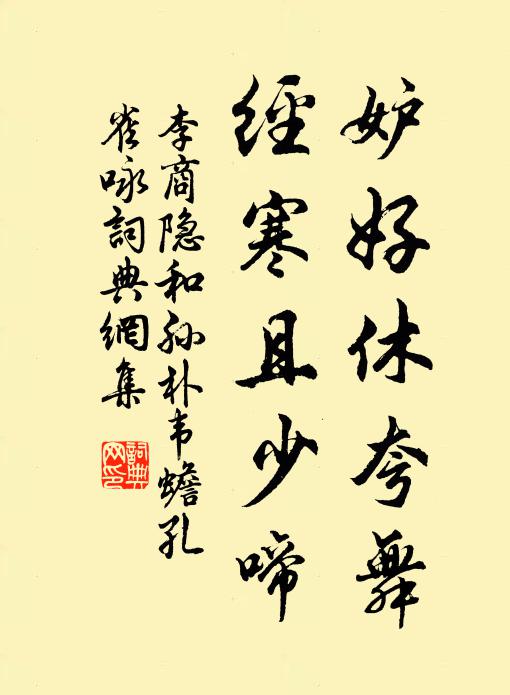 妒好休夸舞
經寒且少啼
李商隐和孙朴韦蟾孔
雀咏詞典網集
詞典
网印